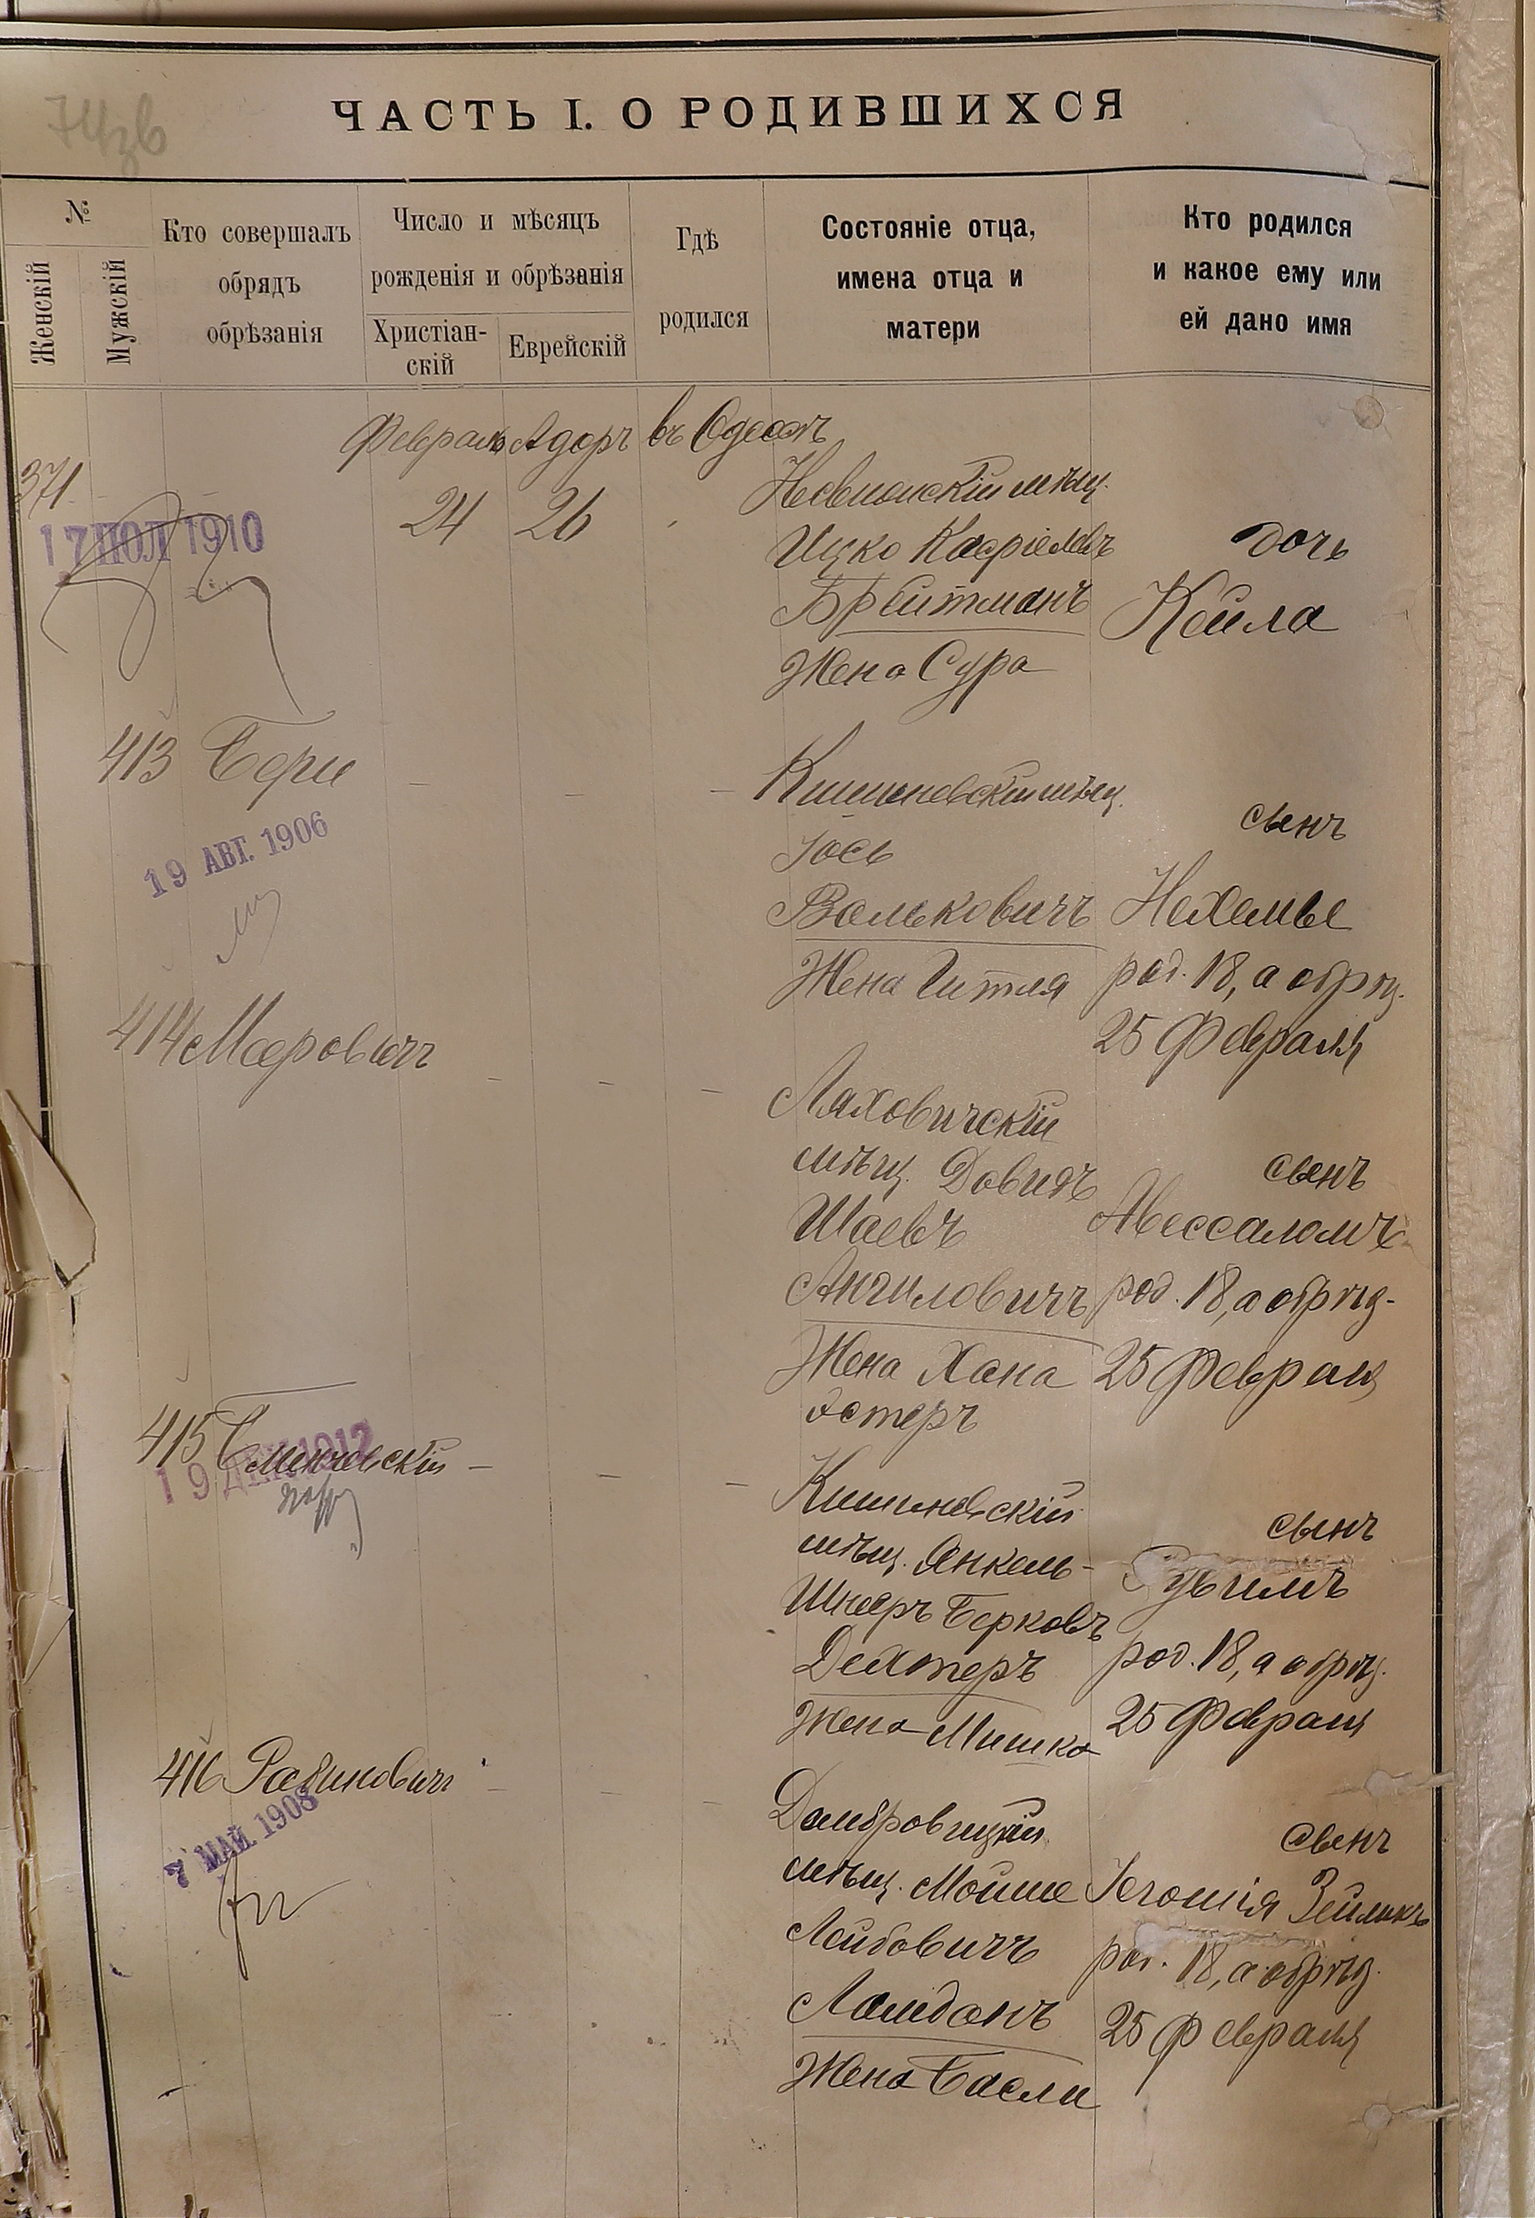 ЧАСТЬ I. О РОДИВШИХСЯ
№
Женскій
Мужскій
Кто совершалъ
обрядъ
обрѣзанія
Число и мѣсяцъ
рожденія и обрѣзанія
Христіан-
скій
Еврейскій
Гдѣ
родился
Состояніе отца,
имена отца и
матери
Кто родился
и какое ему или
ей дано имя
Февраль Адаръ въ Одессѣ
371
17 1910
24 26
мѣщ.
Ицко Касріелевъ
Брейтманъ
Жена Сура
дочь
Кейла
413
Кишиневскій мѣщ.
Іось
Вольковичъ
Жена Гитля
сынъ
Нехемье
род. 18, а обрѣз.
25 Февраля
19 АВГ. 1906
414 Мееровичъ
Ляховичскій
мѣщ. Довидъ
Шаевъ
Ангиловичъ
Жена Хана
Эстеръ
сынъ
Авессаломъ
род. 18, а обрѣз.
25 Февраля
415 Смѣнчевскій
19 ДЕК 1912
Кишиневскій
мѣщ. Янкель-
Шнееръ Берковъ
Дехтеръ
Жена
сынъ
Рувимъ
род. 18, а обрѣз.
25 Февраля
416 Рабиновичъ
7 МАЙ 1908
Домбровицкій
мѣщ. Мойше
Лейбовичъ
Ламданъ
Жена Басли
сынъ
Іегошія Зейликъ
род. 18, а обрѣз.
25 Февраля